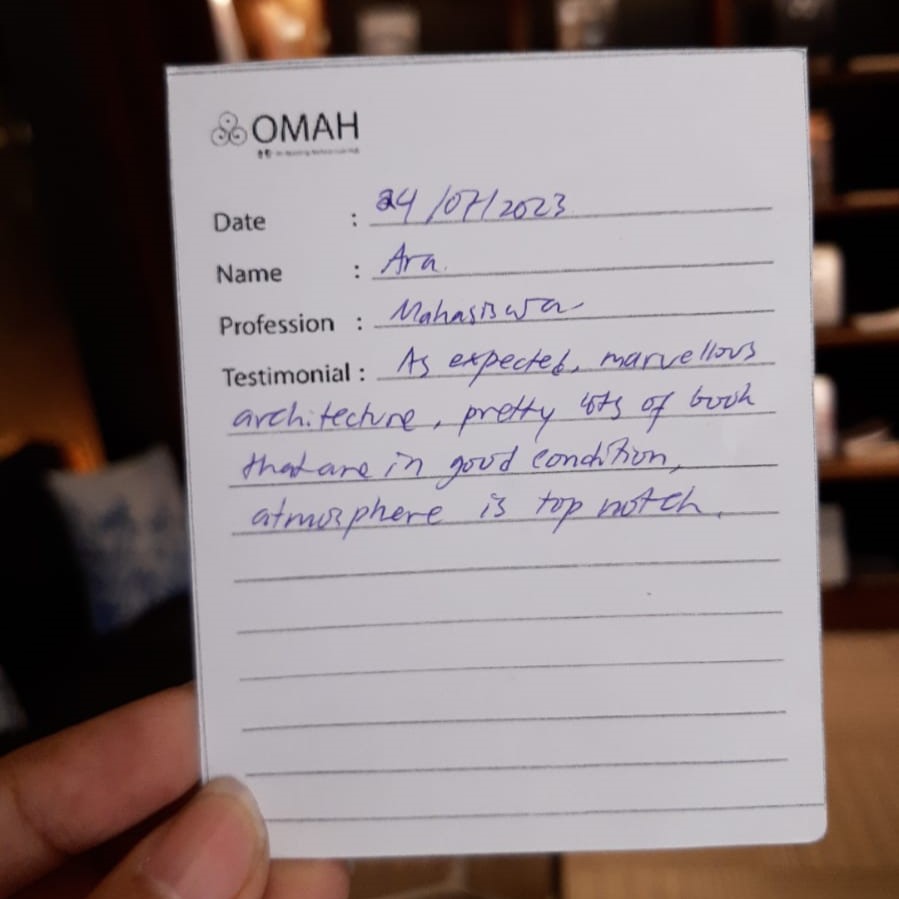 OMAH
Date : 24/07/2023
Name : Ara.
Profession : Mahasiswa
Testimonial : As expected, marvellous
architecture, pretty lots of book
that are in good condition,
atmosphere is top notch.